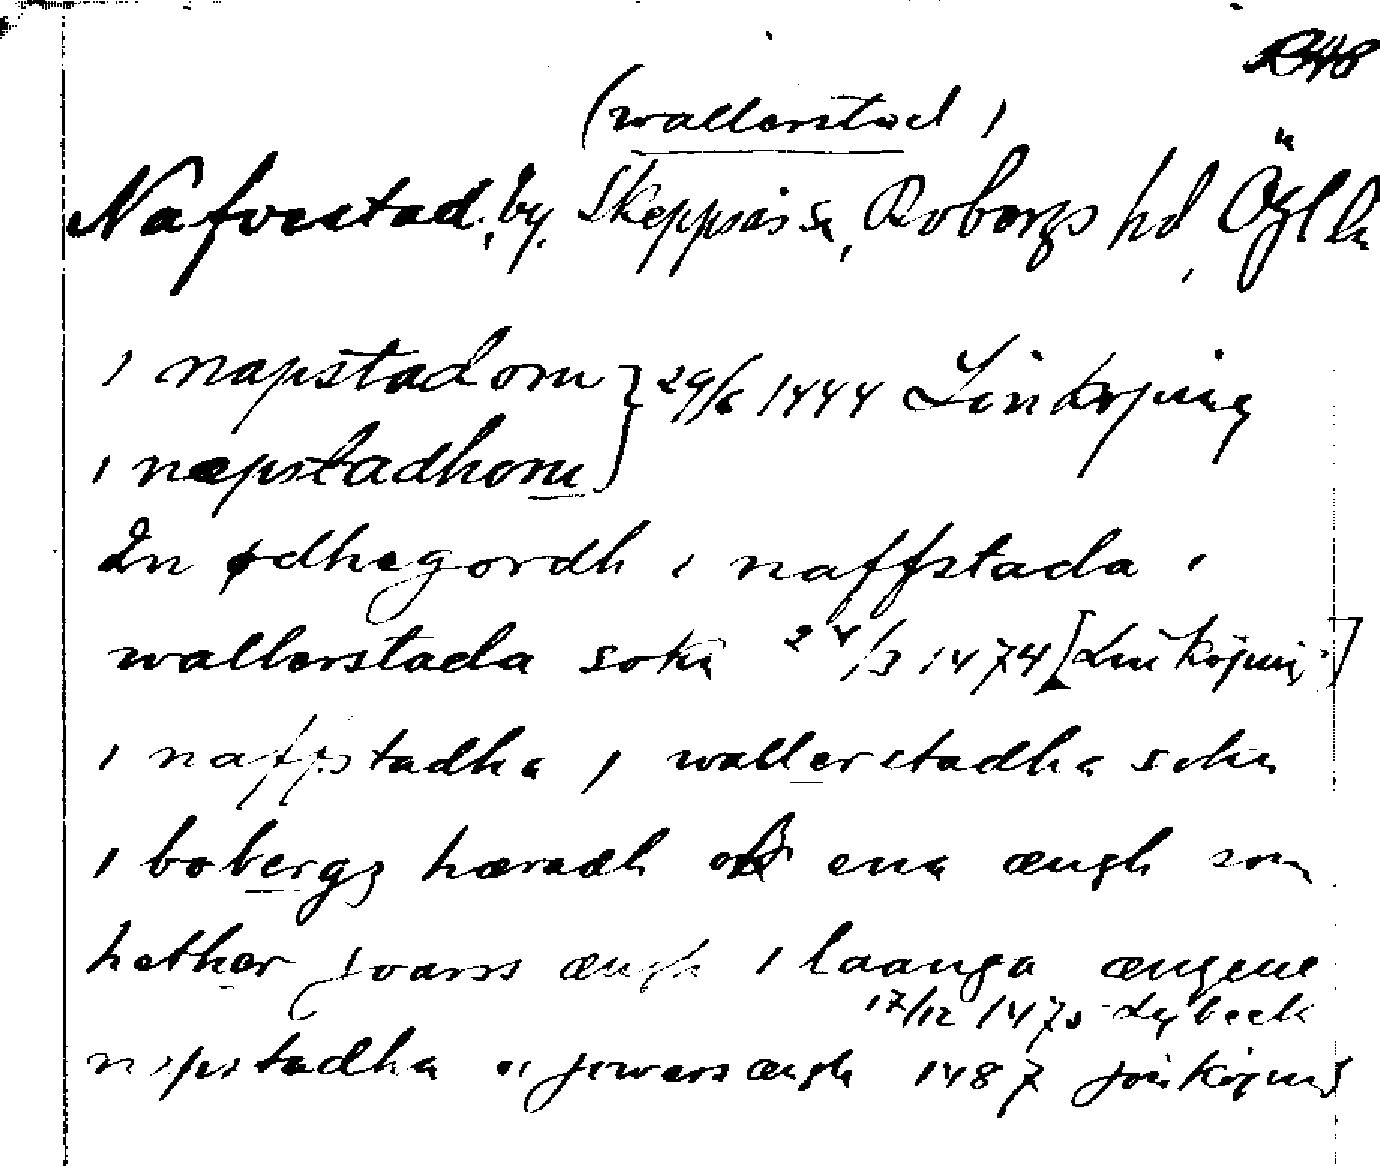 (wallerstad)
Nafvestad, by. Skeppsås sn, Bobergs hd, Ögl
i napstadom } 29/6 1444 Linköping
i næpstadhom
En ødhegordh i naffstada i
wallerstada sokn 24/3 1474 [Linköping]
i naffstadha j wallerstadha sokn
i bobergs hæradh ok ena ængh som
hether joarss ængh i laanga ængene
17/12 1475 Lybeck
jowars ængh 1487 Jönköping